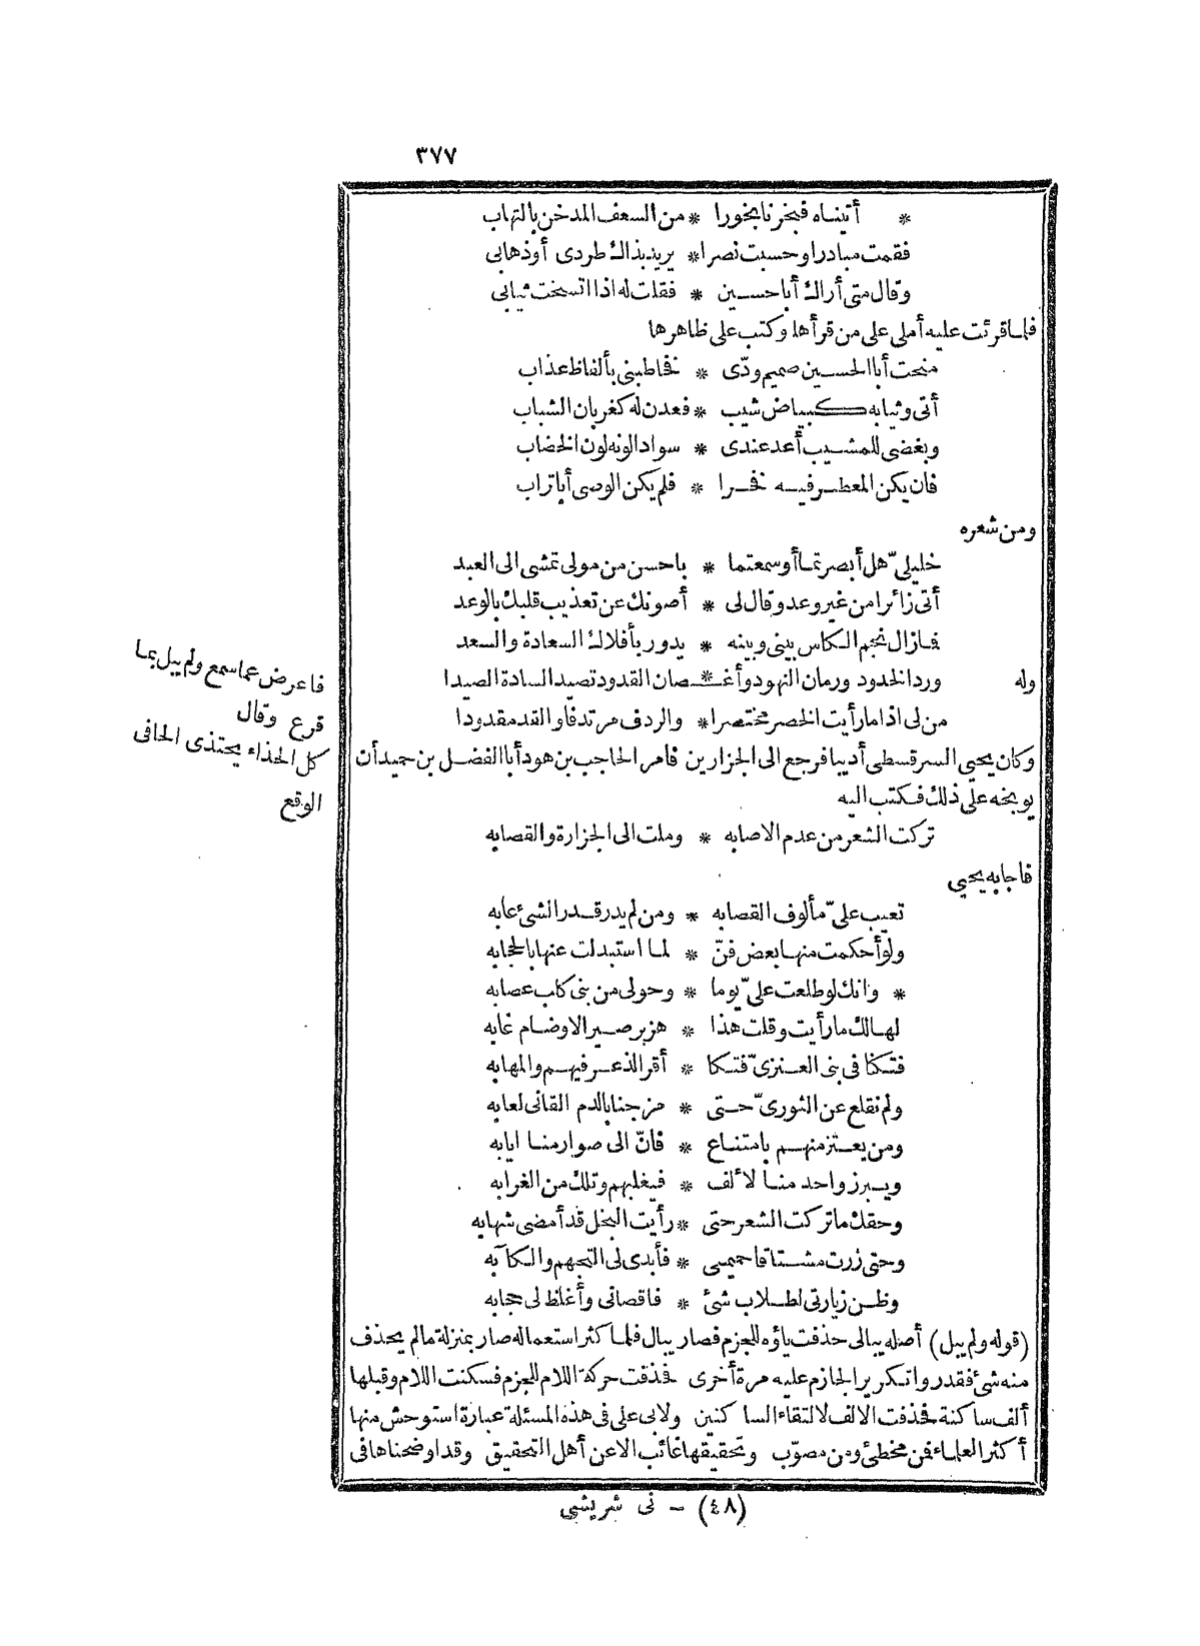 ٣٧٧
* أتيناه فبخرنا بخورا * من السعف المدخن بالتهاب
فقمت مبادرا وحسبت نصرا * يريد بذاك طردى أوذهابى
وقال متى أراك أبا حسين * فقلت له اذا اتسخت ثيابى
فلما قرئت عليه أملى على من قرأها وكتب على ظاهرها
منحت أبا الحسين صميم ودّى * فخاطبنى بألفاظ عذاب
أتى وثيابه كبياض شيب * فعدن له كغربان الشباب
وبغضى للمشيب أعد عندى * سوادا لونه لون الخضاب
فان يكن المعطر فيه فخرا * فلم يكن الوصى أبا تراب
ومن شعره
خليلىّ هل أبصرتما أو سمعتما * باحسن من مولى تمشى الى العبد
أتى زائرا من غير وعد وقال لى * أصونك عن تعذيب قلبك بالوعد
فما زال نجم الكاس بينى وبينه * يدور بأفلاك السعادة والسعد
وله ورد الخدود ورمان النهود وأغصان * القدود تصيد السادة الصيدا
من لى اذا ما رأيت الخصر مختصرا * والردف مرتدفا والقد مقدودا
وكان يحيى السرقسطى أديبا فرجع الى الجزارين فامر الحاجب بن هود أبا الفضل بن حميد أن
يوبخه على ذلك فكتب اليه
تركت الشعر من عدم الاصابه * وملت الى الجزارة والقصابه
فاجابه يحيى
تعيب علىّ مألوف القصابه * ومن لم يدر قدر الشئ عابه
ولو أحكمت منها بعض فنّ * لما استبدلت عنها بالحجابه
* وانك لو طلعت علىّ يوما * وحولى من بنى كلب عصابه
لهالك ما رأيت وقلت هذا * هزبر صير الاوضام غابه
فتكنا فى بنى العنزىّ فتكا * أقر الذعر فيهم والمهابه
ولم نقلع عن الثورىّ حتى * مزجنا بالدم القانى لعابه
ومن يعتز منهم بامتناع * فانّ الى صوارمنا ايابه
ويبرز واحد منا لألف * فيغلبهم وتلك من الغرابه
وحقك ما تركت الشعر حتى * رأيت البخل قد أمضى شهابه
وحتى زرت مشتاقا حميمى * فأبدى لى التجهم والكآبه
وظن زيارتى لطلاب شئ * فاقصانى وأغلظ لى حجابه
(قوله ولم يبل) أصله يبالى حذفت ياؤه للجزم فصار يبال فلما كثر استعماله صار بمنزلة ما لم يحذف
منه شئ فقدروا تكرير الجازم عليه مرة أخرى فحذفت حركة اللام للجزم فسكنت اللام وقبلها
ألف ساكنة فحذفت الالف لالتقاء الساكنين ولابى على فى هذه المسئلة عبارة استوحش منها
أكثر العلماء فمن مخطئ ومن مصوّب وتحقيقها غائب الا عن أهل التحقيق وقد اوضحناها فى
فاعرض عما سمع ولم يبل بما
قرع وقال
كل الحذاء يحتذى الحافى
الوقع
(٤٨) - نى شريشي